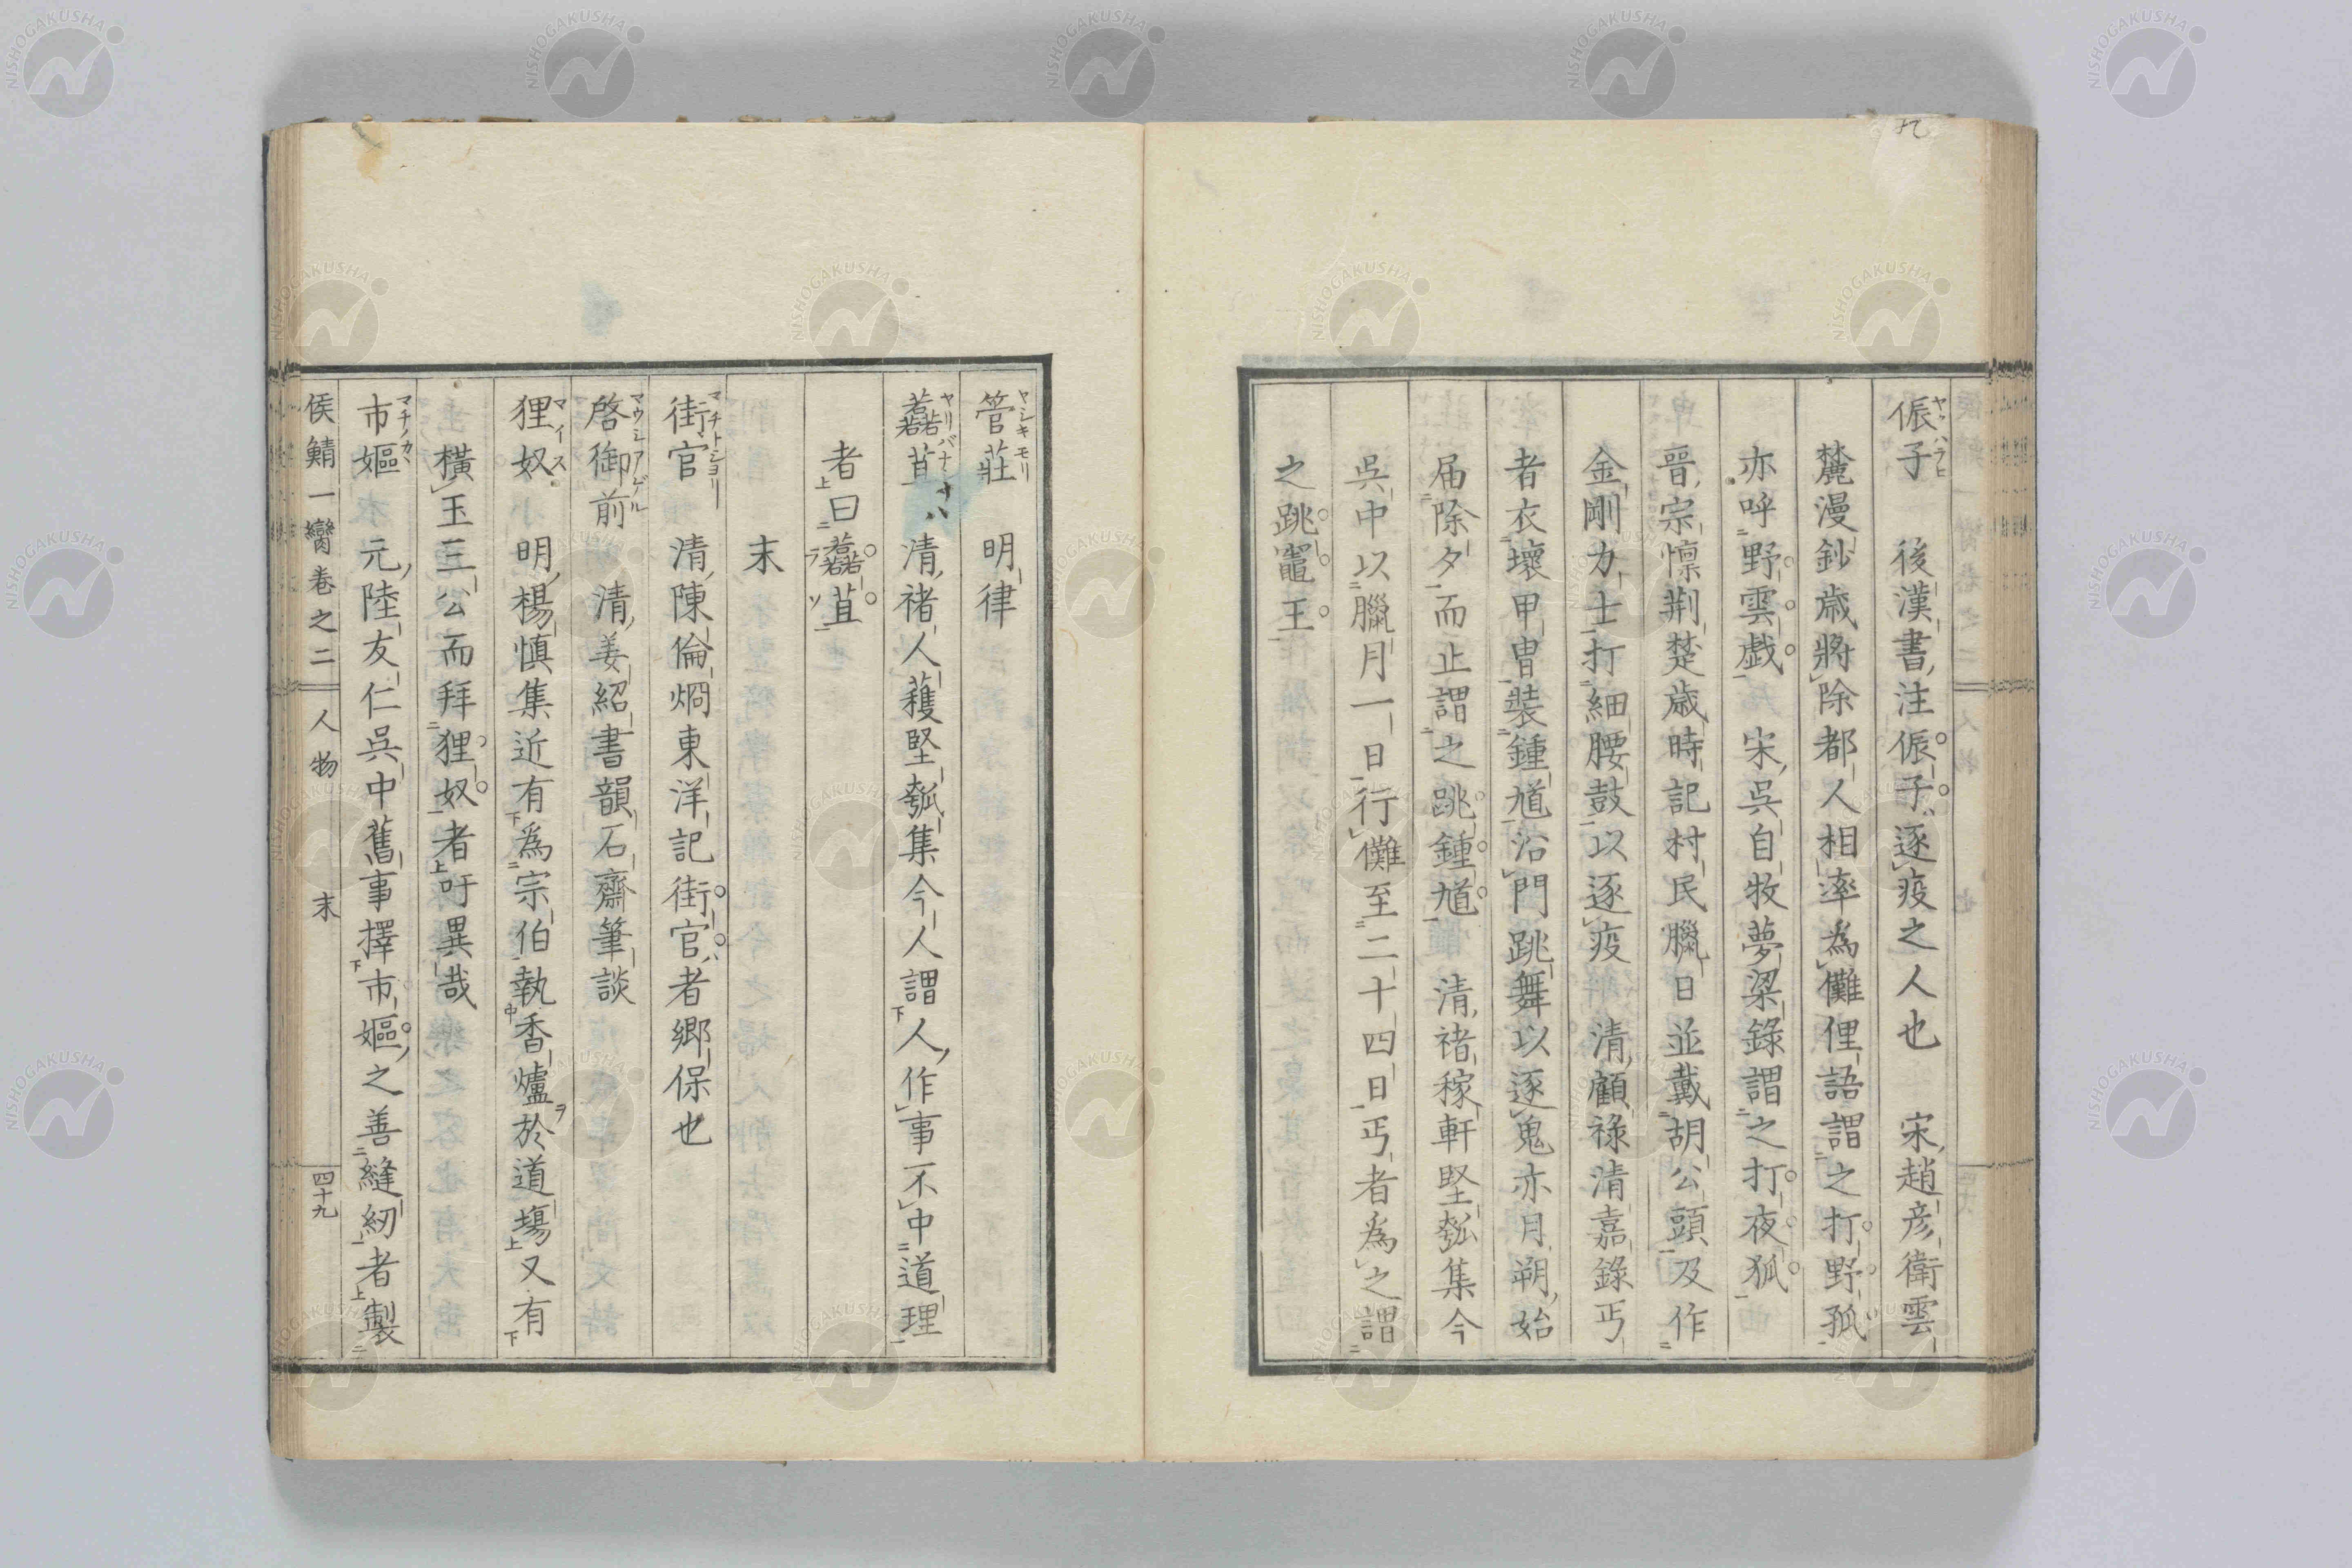 侲子 後漢書注侲子逐疫之人也 宋趙彦衛雲
麓漫鈔歳將除都人相率為儺俚語謂之打野狐
亦呼野雲戯 宋吳自牧夢梁錄謂之打夜狐
晉宗懍荊楚歳時記村民臘日並戴胡公頭及作
金剛力士打細腰鼓以逐疫 清顧祿清嘉錄丐
者衣壞甲冑裝鍾馗沿門跳舞以逐鬼亦月朔始
届除夕而止謂之跳鍾馗 清褚稼軒堅瓠集今
吳中以臘月一日行儺至二十四日丐者為之謂
之跳竈王
管莊 明律
苴 清褚人蘀堅瓠集今人謂人作事不中道理
者曰苴
末
街官 清陳倫烱東洋記街官者郷保也
啓御前 清姜紹書韻石齋筆談
狸奴 明楊慎集近有為宗伯執香爐於道場又有
橫玉三公而拜狸奴者吁異哉
市嫗 元陸友仁吳中舊事擇市嫗之善縫紉者製
侯鯖一臠卷之二 人物 末 四十九
NISHOGAKUSHA